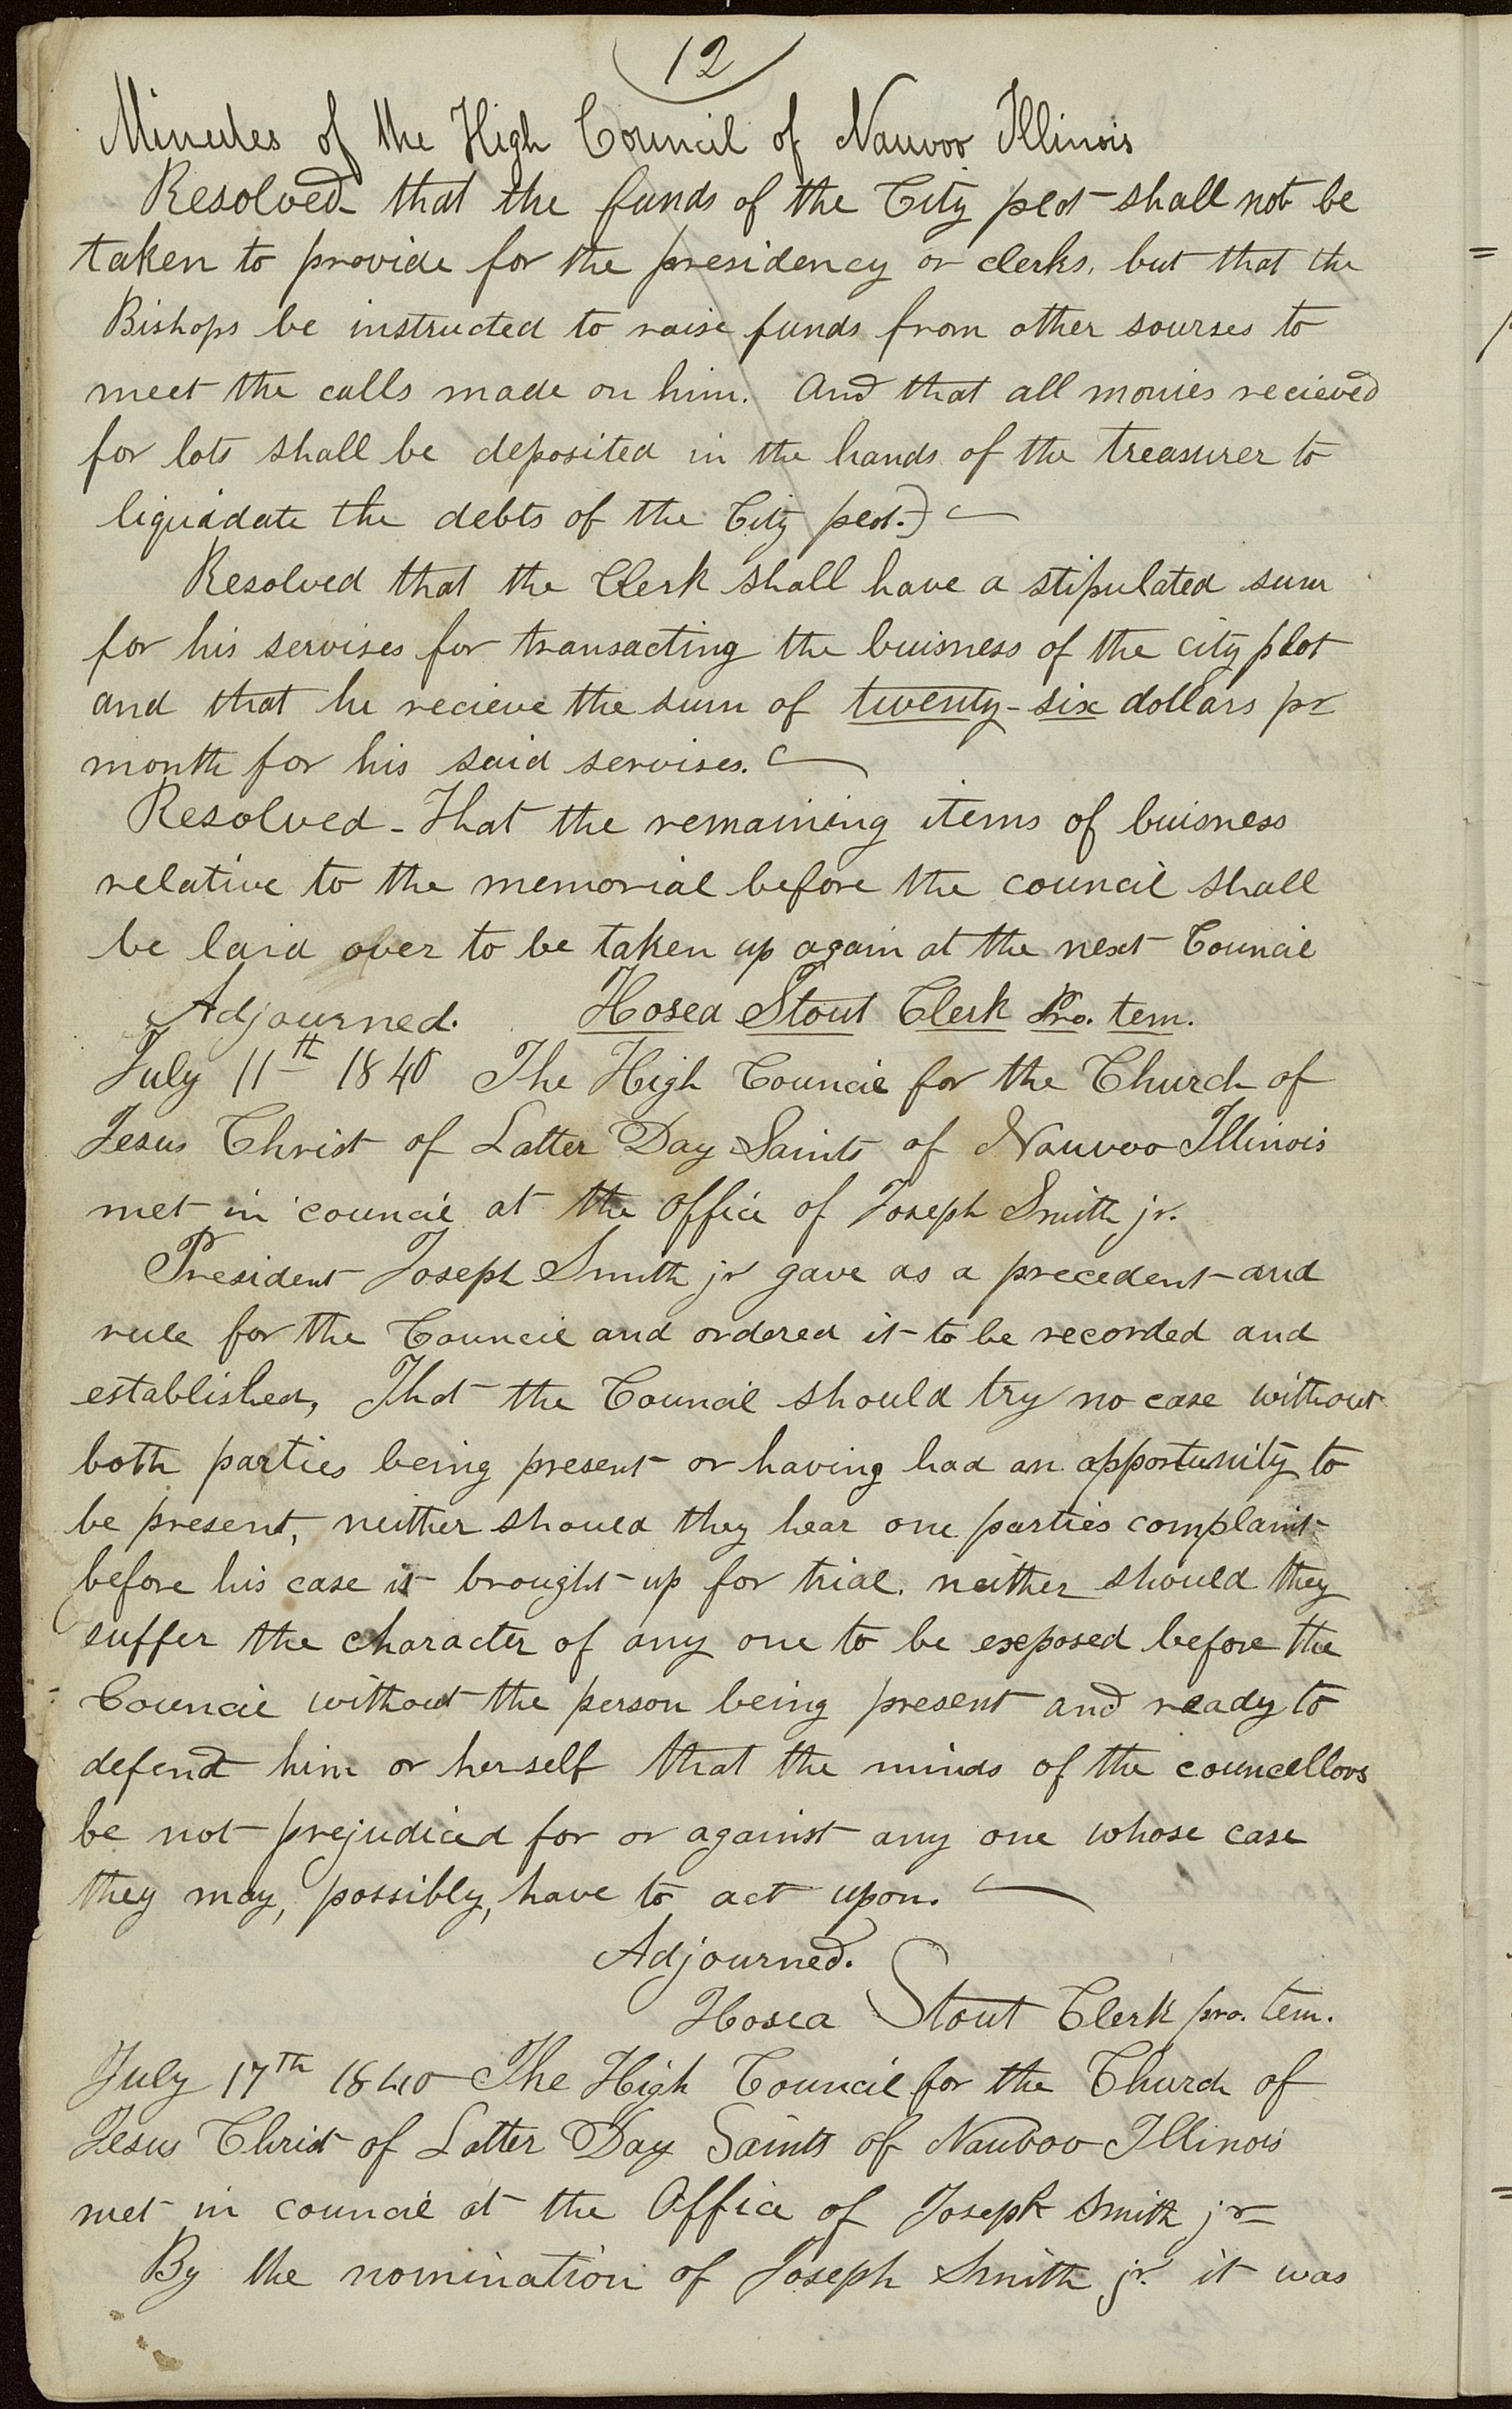 12
Minutes of the High Council of Nauvoo Illinois
Resolved that the funds of the City plot shall not be
taken to provide for the presidency or clerks, but that the
Bishops be instructed to raise funds from other sourses to
meet the calls made on him. And that all monies recieved
for lots shall be deposited in the hands of the treasurer to
liquidate the debts of the City plot.)
Resolved that the Clerk shall have a stipulated sum
for his servises for transacting the buisness of the city plot
and that he recieve the sum of twenty-six dollars pr
month for his said servises.
Resolved - That the remaining items of buisness
relative to the memorial before the council shall
be laid over to be taken up again at the next Council
Adjourned. Hosea Stout Clerk Pro. tem.
July 11th 1840 The High Council for the Church of
Jesus Christ of Latter Day Saints of Nauvoo Illinois
met in council at the office of Joseph Smith jr.
President Joseph Smith jr gave as a precedent and
rule for the Council and ordered it to be recorded and
established, That the Council should try no case without
both parties being present or having had an opportunity to
be present, neither should they hear one parties complaint
before his case is brought up for trial, neither should they
suffer the character of any one to be exposed before the
Council without the person being present and ready to
defend him or herself that the minds of the councellors
be not prejudiced for or against any one whose case
they may, possibly, have to act upon.
Adjourned.
Hosea Stout Clerk pro. tem.
July 17th 1840 The High Council for the Church of
Jesus Christ of Latter Day Saints of Nauvoo Illinois
met in council at the Office of Joseph Smith jr
By the nomination of Joseph Smith jr. it was